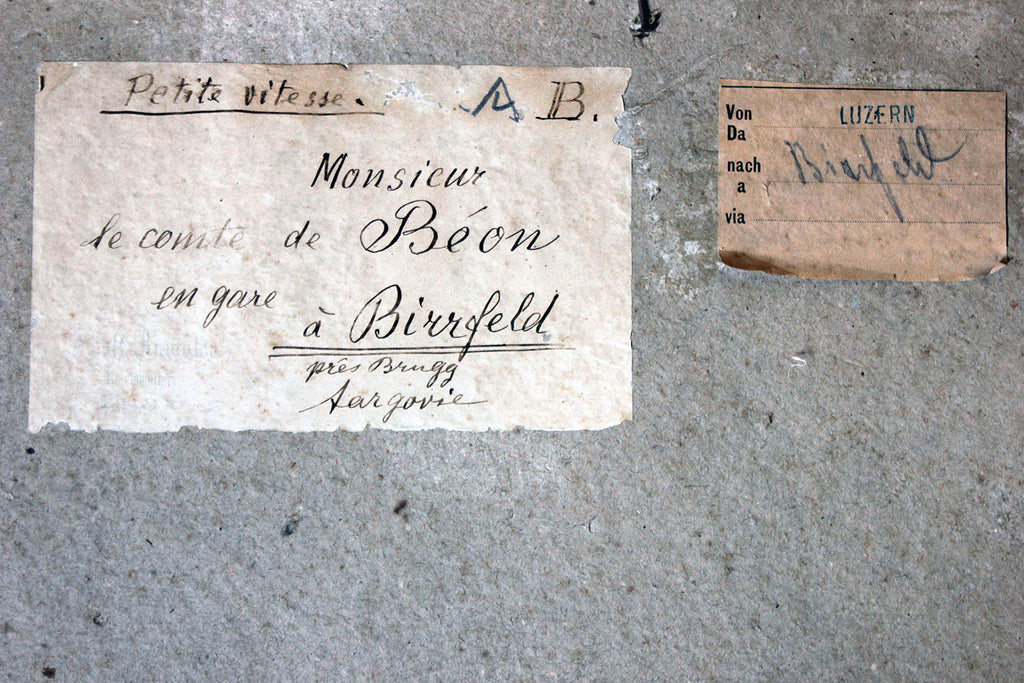 Petite vitesse. A B.
Monsieur
le comte de Béon
en gare
à Birrfeld
près Brugg
Aargovie
Von LUZERN
Da
nach Birrfeld
a
via